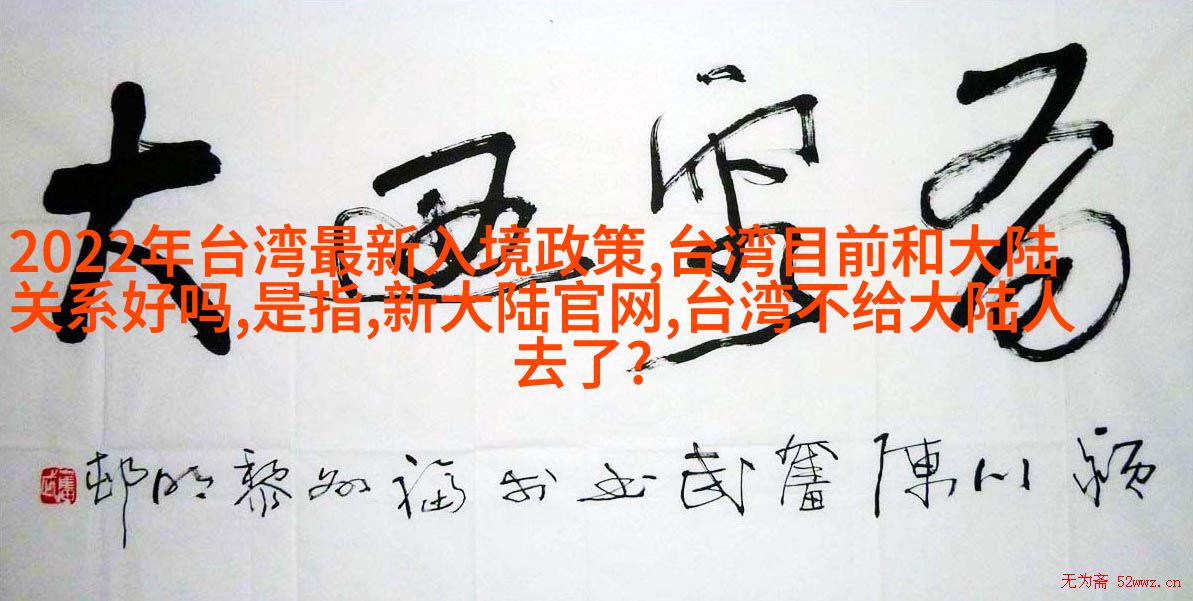 大
2022年台湾最新入境政策,台湾目前和大陆
关系好吗,是指,新大陆官网,台湾不给大陆人
去了?
川陳奮武书于福州黎明邨
无为斋 52wwz.cn